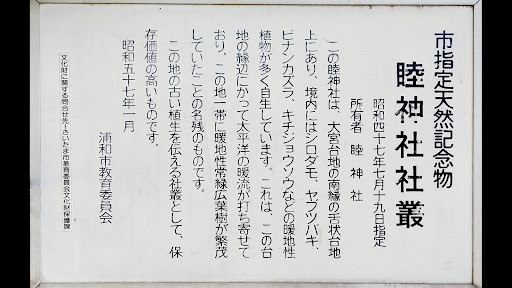 市指定天然記念物
睦神社社叢
昭和四十七年七月十九日指定
所有者 睦神社
この睦神社は、大宮台地の南縁の舌状台地
上にあり、境内にはシロダモ、ヤブツバキ、
ビナンカズラ、キチジョウソウなどの暖地性
植物が多く自生しています。これは、この台
地の縁辺にかつて太平洋の暖流が打ち寄せて
おり、この地一帯に暖地性常緑広葉樹が繁茂
していたことの名残のものです。
この地の古い植生を伝える社叢として、保
存価値の高いものです。
昭和五十七年一月
浦和市教育委員会
文化財に関する問合せ先→さいたま市教育委員会文化財保護課